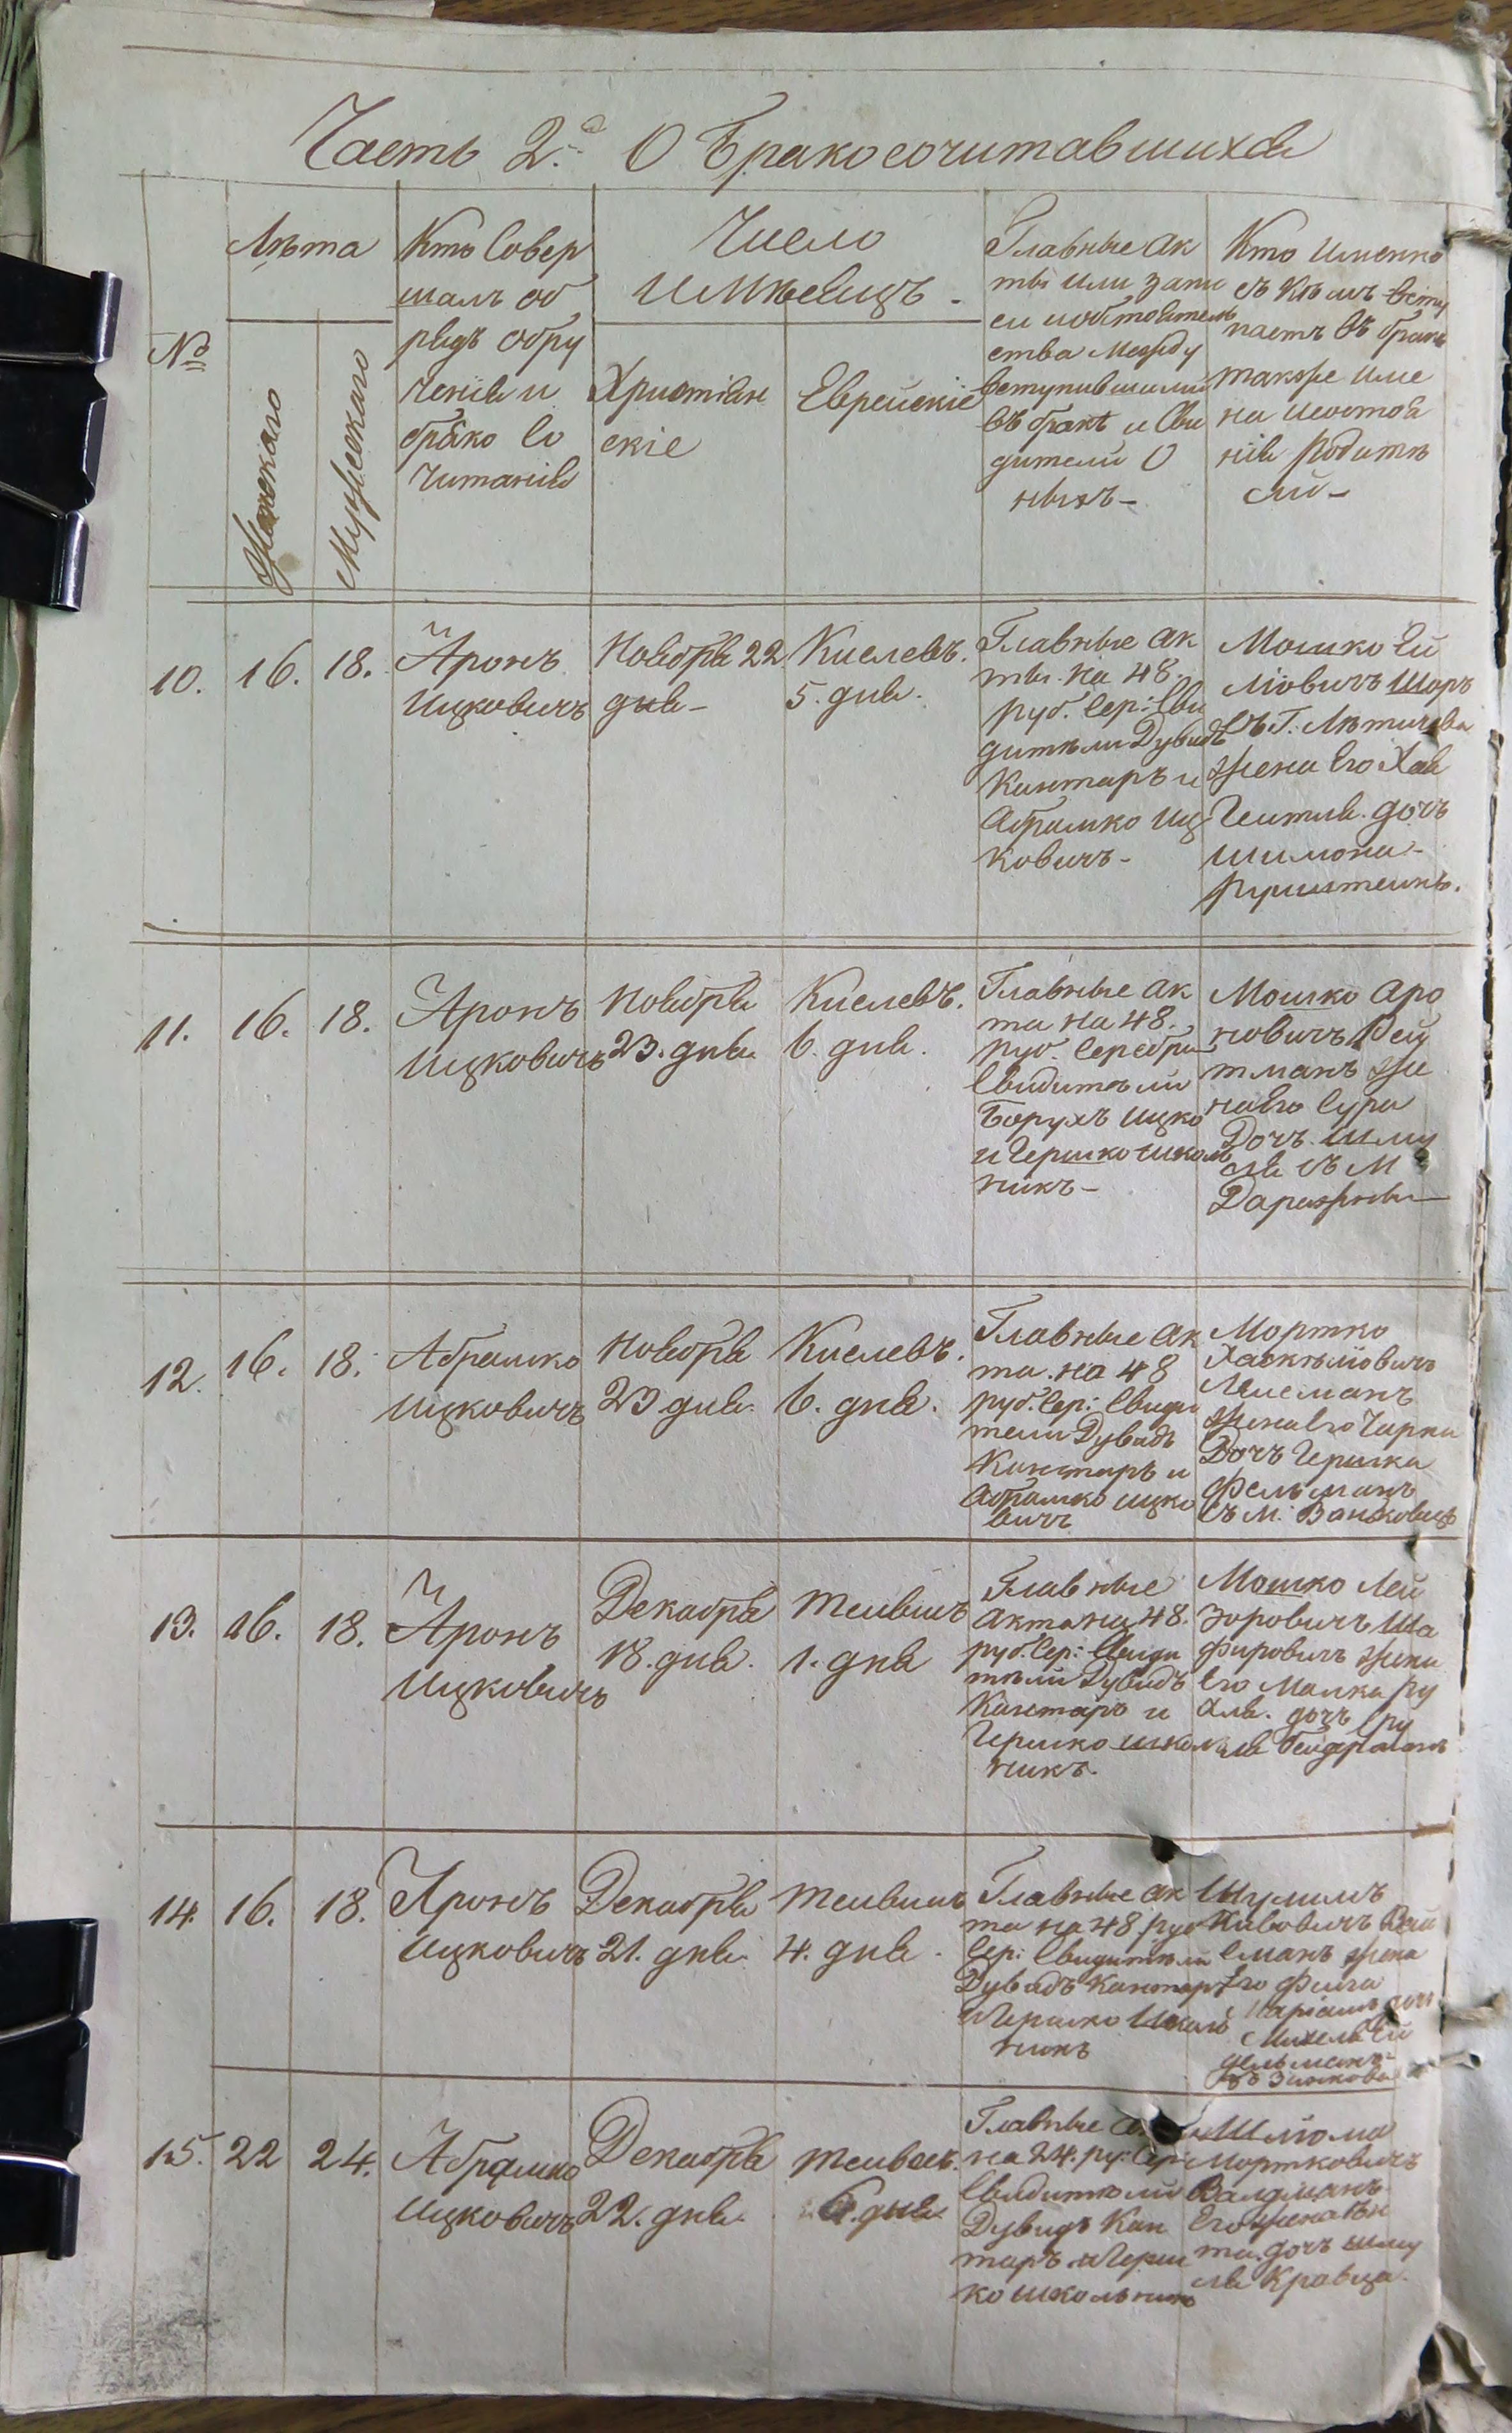 Часть 2.а О Бракосочитавшихся
№
Лѣта
Женскаго
Мужескаго
Кто Совер
шалъ об
рядъ обру
ченія и
брако со
читанія
Число
и Мѣсяцъ -
Христіан
скіе
Еврейскіе
Главные ак
ты или запи
си иобстоятель
ства Между
вступившими
въ бракъ и Сви
дители О
ныхъ -
Кто именно
съ Кѣмъ всту
паетъ въ бракъ
также име
на исостоя
нія родите
лей -
10.
16.
18.
Аронъ
Ицковичъ
Ноября 22
дня -
Кислевъ.
5. дня.
Главные ак
ты. на 48.
руб. сер: Сви
дитѣли Дувидъ
Кантаръ и
Абрамко Иц
ковичъ -
Мошко Ей
ліовичъ Шоръ
съ Г. Лѣтичева
жена Его Хая
Гитля. дочъ
Шимона -
11.
16.
18.
Аронъ
Ицковичъ
Ноября
23. дня
Кислевъ.
6. дня.
Главные ак
та на 48.
руб. Серебри
Свидитѣли
Борухъ Ицко
и Гершко школь
никъ -
Мошко Аро
новичъ Рей
тманъ же
наЕго Сура
Дочъ Шму
ля съ М
Даражни
12.
16.
18.
Абрамко
Ицковичъ
Ноября
23 дня.
Кислевъ.
6. дня.
Главные ак
та. на 48
руб. Сер: Свиди
тели Дувидъ
Кантаръ и
Абрамко Ицко
вичъ
Мортко
Хаскѣліовичъ
жена Его Чарна
Дочъ Гершка
Фельманъ
съ М. Ваньковицъ
13.
16.
18.
Аронъ
Ицковичъ
Декабря
18. дня.
Тейвисъ
1. дня
Главные
Акта на 48.
руб. Сер: Свиди
тѣли Дувидъ
Кантаръ и
Гершко школь
никъ.
Мошко Лей
зоровичъ Ша
фировичъ жена
Его Малка Ру
хля. дочъ Сру
ля
14.
16.
18.
Аронъ
Ицковичъ
Декабря
21. дня.
Тейвисъ
4. дня.
Главные ак
та на 48 руб
Сер: Свидитѣли
Дувидъ Кантаръ
иГершко Школь
никъ
Шулимъ
сманъ жена
Его Фейга
Маріамъ дочъ
съ Зинкова
15.
22
24.
Абрамко
Ицковичъ
Декабря
22. дня.
Тейвесъ.
дня.
Главные
на 24. ру: Сер:
Свидитѣли
Дувидъ Кан
таръ иГерш
ко школьникъ
Шліома
Мортковичъ
Валдманъ
Его жена Ен
та. дочъ Шму
ля Кравца.